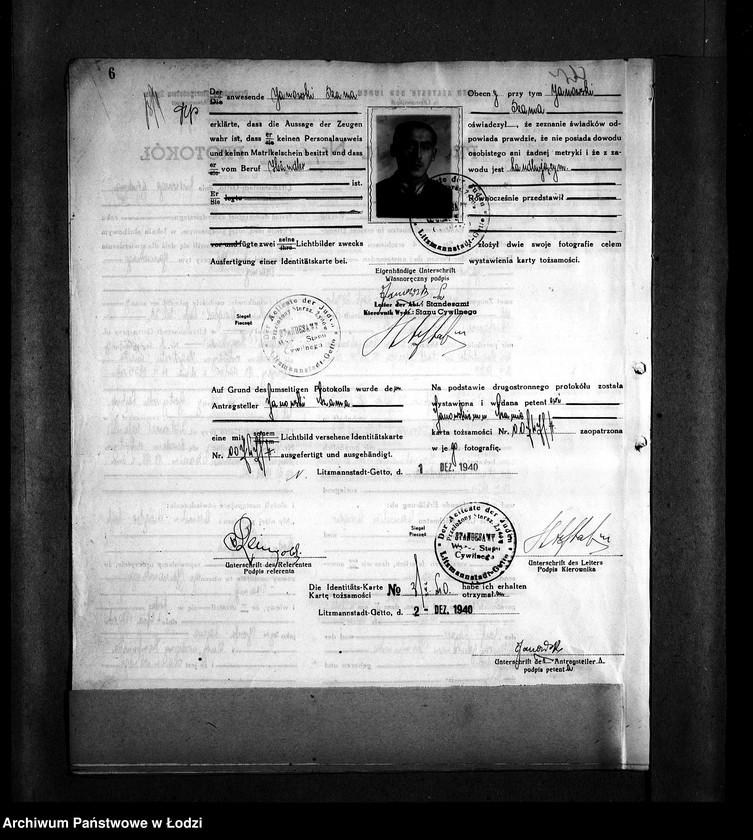 6
Der
Die anwesende Janowski Szama
erklärte, dass die Aussage der Zeugen
wahr ist, dass er
sie keinen Personalausweis
und keinen Matrikelschein besitzt und dass
er
sie vom Beruf Händler
ist.
Er
Sie legte
vor und fügte zwei seine
ihre Lichtbilder zwecks
Ausfertigung einer Identitätskarte bei.
Obecny przy tym Janowski
Szama
oświadczył, że zeznanie świadków od-
powiada prawdzie, że nie posiada dowodu
osobistego ani żadnej metryki i że z za-
wodu jest handlującym
Równocześnie przedstawił
złożył dwie swoje fotografie celem
wystawienia karty tożsamości.
Eigenhändige Unterschrift
Własnoręczny podpis
Leiter der Abt.: Standesamt
Kierownik Wydz.: Stanu Cywilnego
Siegel
Pieczęć
Der Aelteste der Juden
Litzmannstadt-Getto
STANDESAMT
Stanu
Cywilnego
Auf Grund des umseitigen Protokolls wurde dem
Antragsteller Janowski Szama
eine mit seinem
Lichtbild versehene Identitätskarte
Nr. ausgefertigt und ausgehändigt.
Na podstawie drugostronnego protokółu została
wystawiona i wydana petent owi
Janowskiemu Szamie
karta tożsamości Nr. zaopatrzona
w jego fotografię.
Litzmannstadt-Getto, d. 1 DEZ. 1940
Unterschrift des Referenten
Podpis referenta
Siegel
Pieczęć
Der Aelteste der Juden
Przełożony Starsz. Żydów
STANDESAMT
Stanu
Cywilnego
Litzmannstadt-Getto
Unterschrift des Leiters
Podpis Kierownika
Die Identitäts-Karte
Kartę tożsamości No habe ich erhalten
otrzymał
Litzmannstadt-Getto, d. 2 - DEZ. 1940
Janowski
Unterschrift des Antragstellers
podpis petenta
Archiwum Państwowe w Łodzi